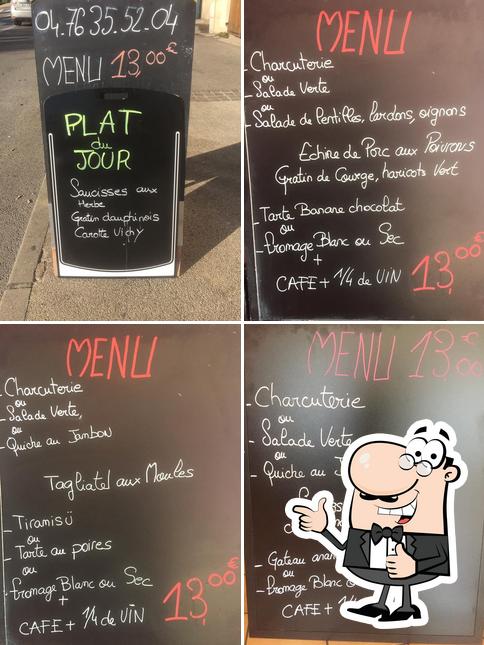 04.76 35.52.04
MENU 13,00€
PLAT
du
JOUR
Saucisses aux
Herbe
Gratin dauphinois
Carotte Vichy
MENU
- Charcuterie
ou
- Salade Verte
ou
- Salade de lentilles, lardons, oignons
Echine de Porc aux Poivrons
Gratin de Courge, haricots Vert
- Tarte Banane chocolat
ou
- fromage Blanc ou Sec
+
CAFE + 1/4 de VIN
13,00€
MENU
- Charcuterie
ou
- Salade Verte,
ou
- Quiche au Jambon
Tagliatel aux Moules
- Tiramisü
ou
- Tarte au poires
ou
- fromage Blanc ou Sec
+
CAFE + 1/4 de VIN
13,00€
MENU 13,00€
- Charcuterie
ou
- Salade Verte
ou
- Quiche au
- Gateau
ou
- fromage Blanc
+
CAFE +